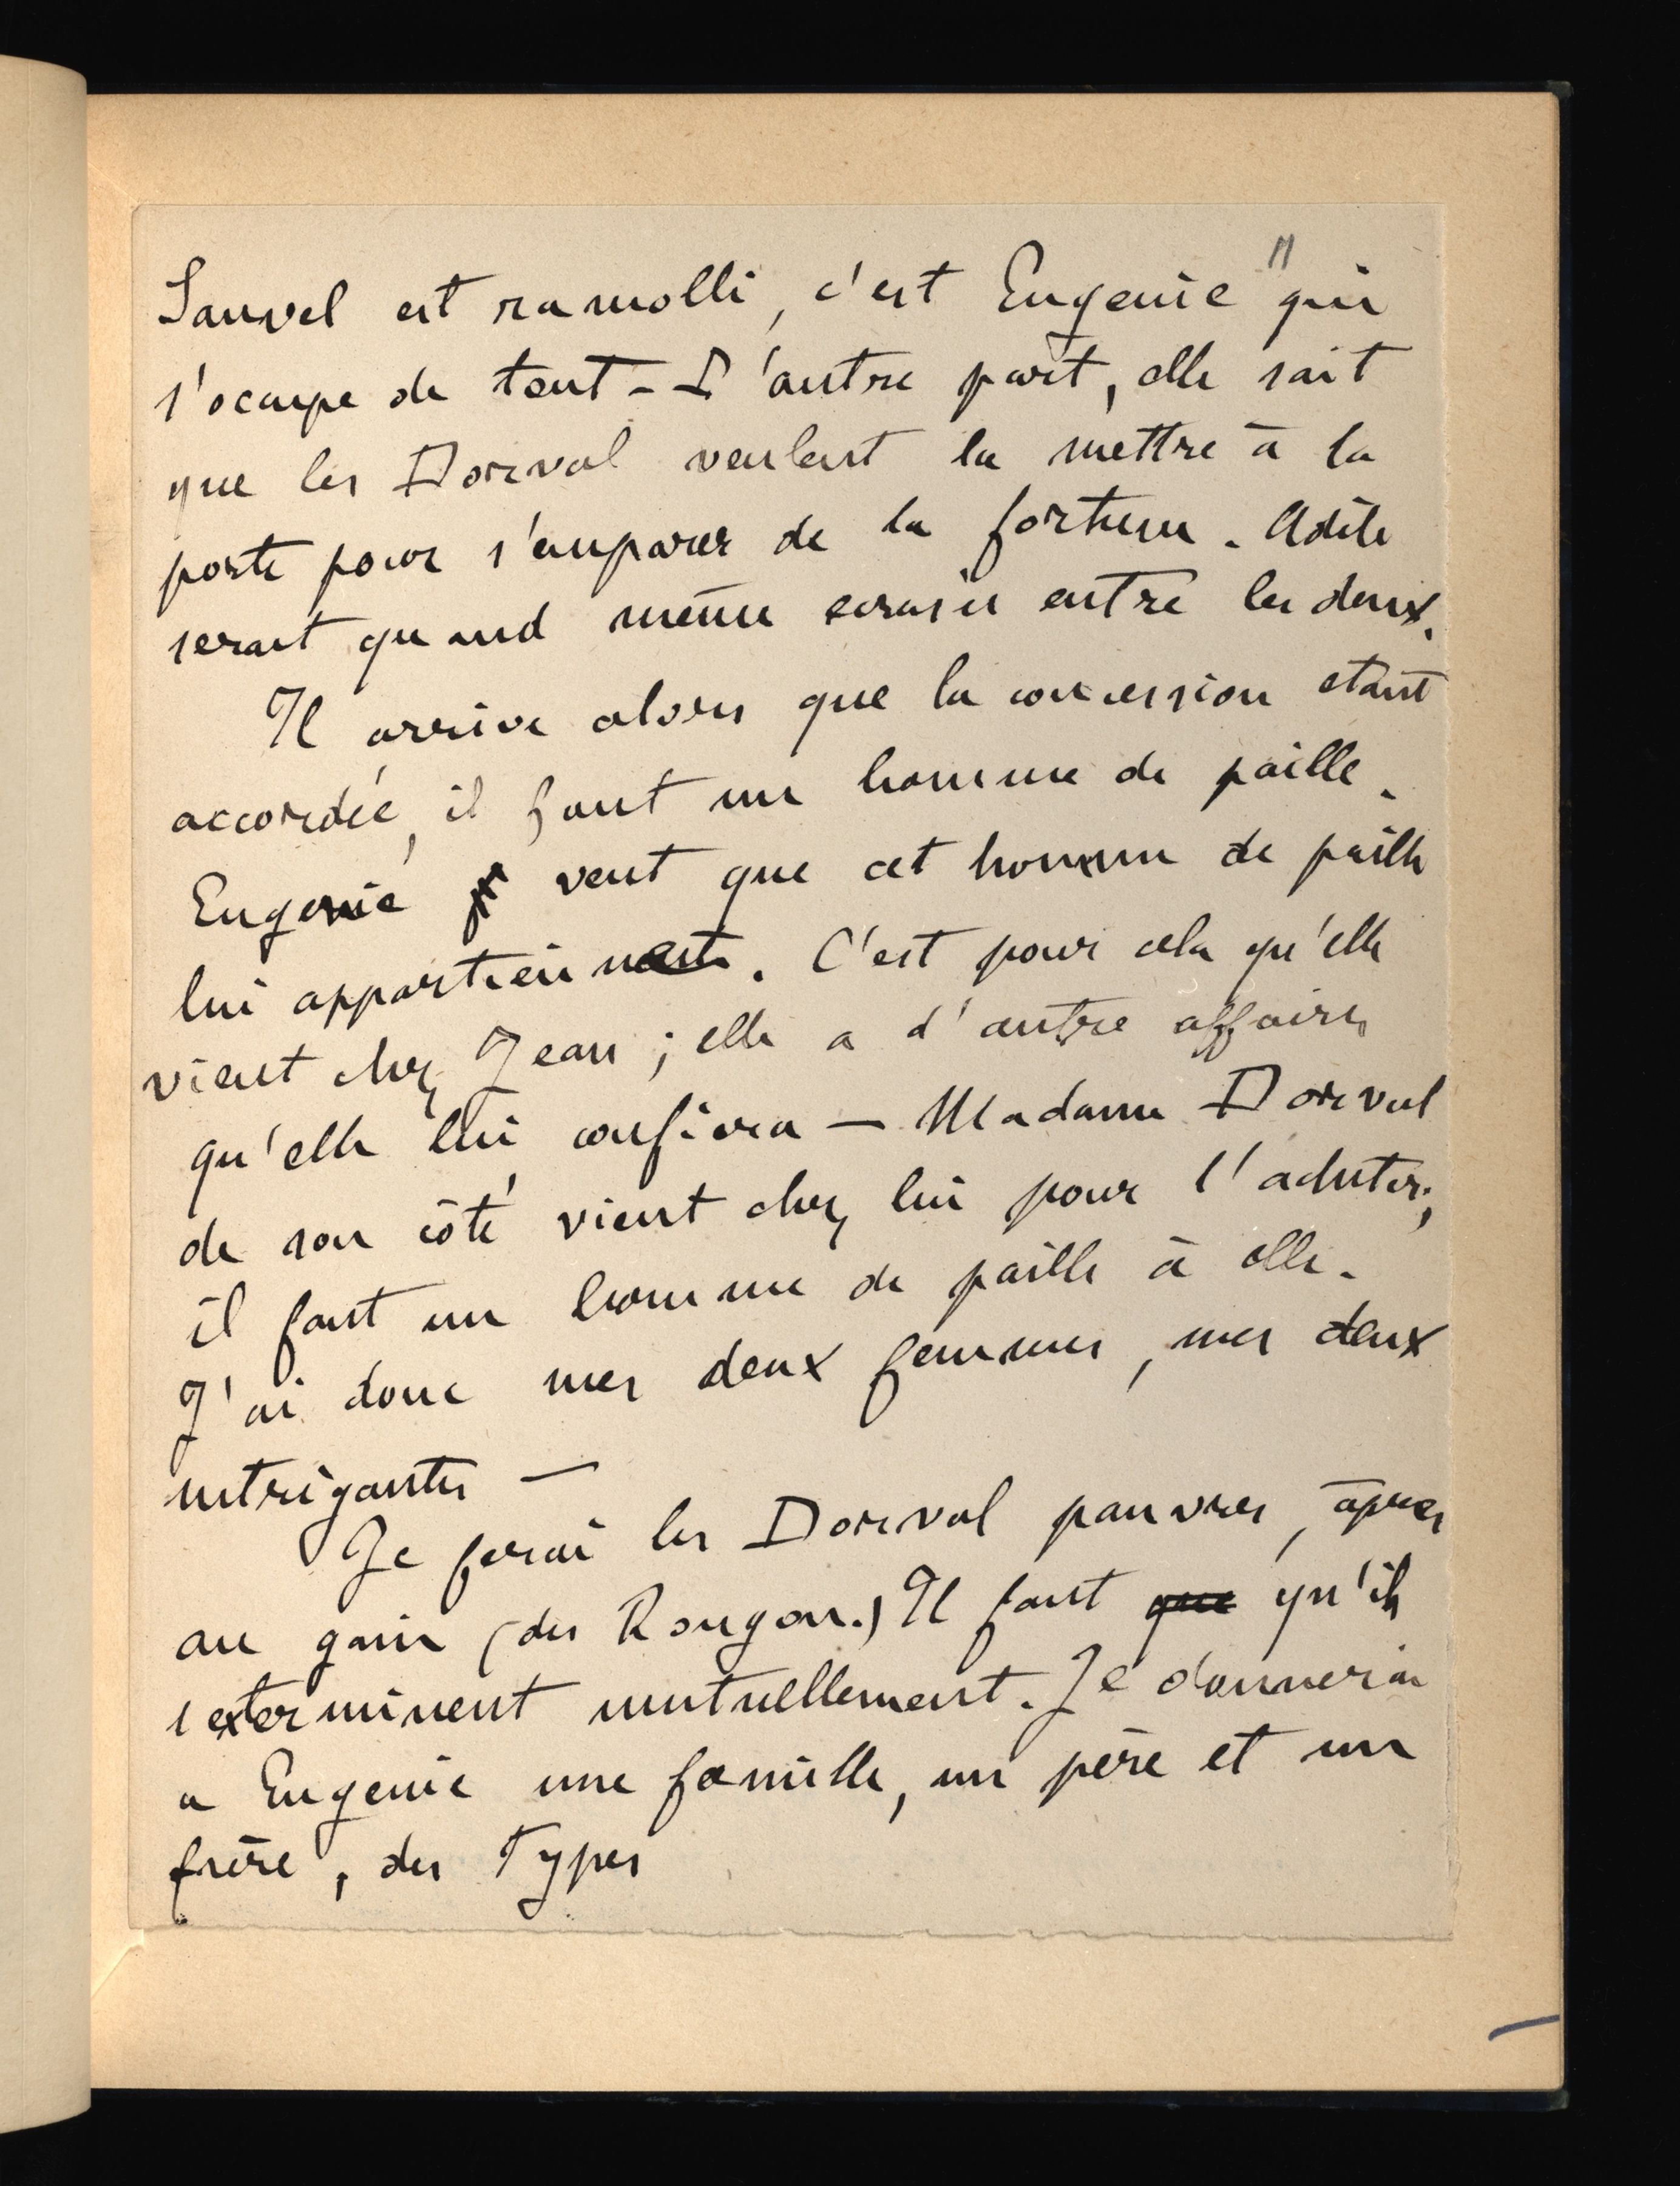 11
Sauvel est ramolli, c'est Eugenie qui
s'ocupe de tout - D'autre part, elle sait
que les Dorval veulent la mettre à la
porte pour s'emparer de la fortune. Adèle
serait quand même ecrasée entre les deux.
Il arrive alors que la concession etant
accordée, il faut un homme de paille.
Eugenie veut que cet homme de paille
lui appartienne. C'est pour cela qu'elle
vient chez Jean ; elle a d'autre affaires
qu'elle lui confiera — Madame Dorval
de son côté vient chez lui pour l'acheter;
il faut un homme de paille à elle.
J'ai donc mes deux femmes, mes deux
intrigantes —
Je ferai les Dorval pauvres, âpres
au gain (des Rougon.) Il faut que qu'ils
s'exterminent mutuellement. Je donnerai
a Eugenie une famille, un père et un
frère, des types